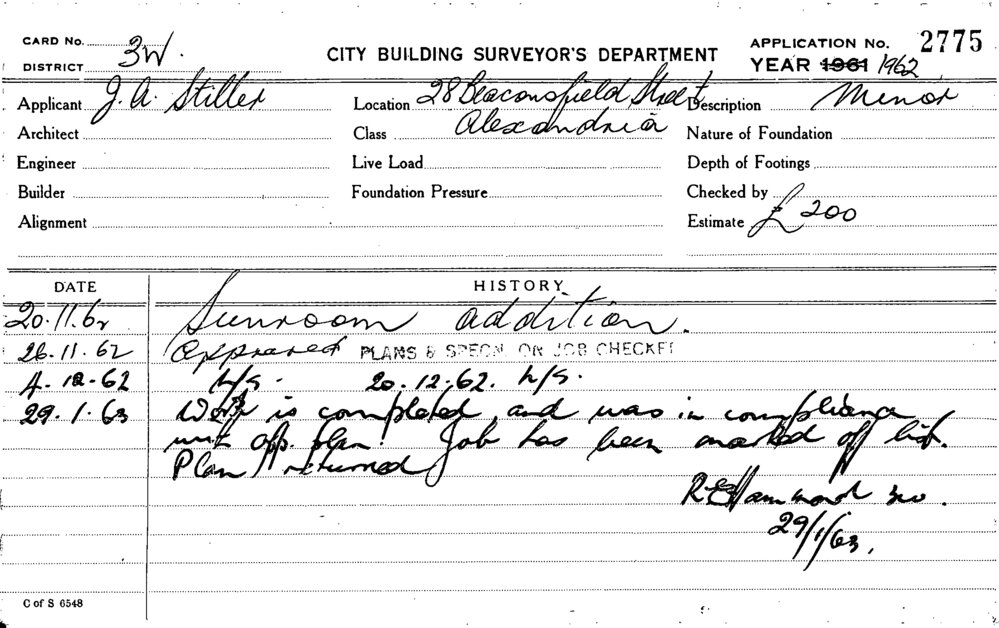 CARD No. 3W.
DISTRICT
CITY BUILDING SURVEYOR'S DEPARTMENT
APPLICATION No. 2775
YEAR 1961 1962
Applicant J. A. Stiller
Location 28 Beaconsfield Street
Alexandria
Description Minor
Architect
Class
Nature of Foundation
Engineer
Live Load
Depth of Footings
Builder
Foundation Pressure
Checked by
Alignment
Estimate £200
DATE
HISTORY
20.11.62 Sunroom addition.
26.11.62 Approved PLANS & SPECN. ON JOB CHECKED
4.12.62 h/s. 20.12.62. h/s.
29.1.63 Work is completed, and was in compliance
with app. plan. Job has been marked off list.
Plan returned
Hammond 3W.
29/1/63.
C of S 6548